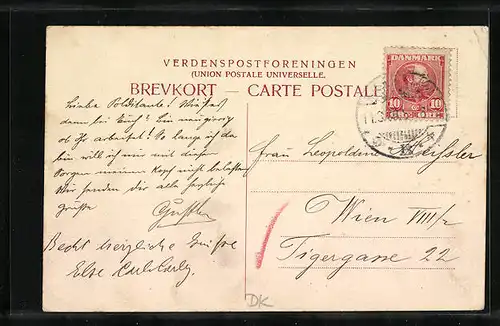 VERDENSPOSTFORENINGEN
(UNION POSTALE UNIVERSELLE.
BREVKORT — CARTE POSTALE
DANMARK
10 10
ØRE
Liebe Polditante! Wie ist
denn bei Euch? Bin neugierig
ob Ihr arbeitet! So lange ich da
bin will ich mir mit diesen
Sorgen meinen Kopf nicht belasten
Wir senden Dir alle herzliche
Grüsse
Gustl
Recht herzliche Grüsse
Else
Frau Leopoldine
Wien VIII/2
Tigergasse 22
DK